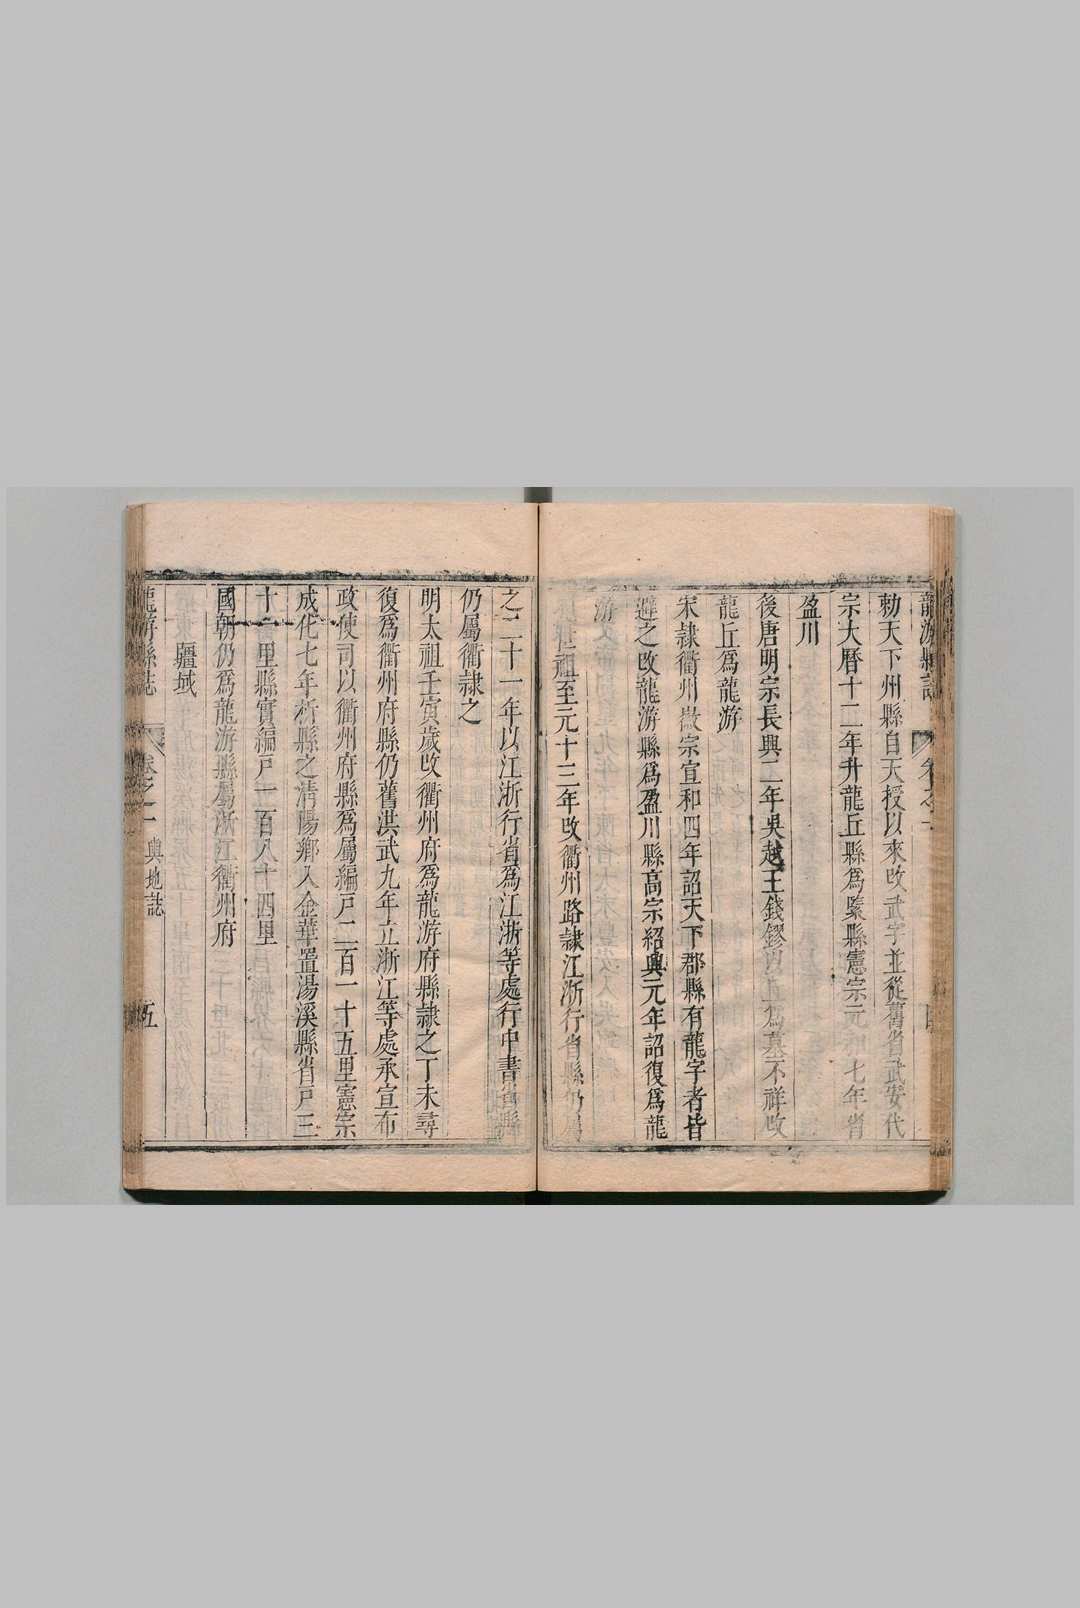 龍游縣誌
勅天下州縣自天授以來改武字並從舊省武安代
宗大曆十二年升龍丘縣為緊縣憲宗元和七年省
盈川
後唐明宗長興二年吳越王錢鏐以丘為墓不祥改
龍丘為龍游
宋隸衢州徽宗宣和四年詔天下郡縣有龍字者皆
避之改龍游縣為盈川縣高宗紹興元年詔復為龍
游
元世祖至元十三年改衢州路隸江浙行省縣仍屬
之二十一年以江浙行省為江浙等處行中書省縣
仍屬衢隸之
明太祖壬寅歲改衢州府為龍游府縣隸之丁未尋
復為衢州府縣仍舊洪武九年立浙江等處承宣布
政使司以衢州府縣為屬編戶二百一十五里憲宗
成化七年析縣之清陽鄉入金華置湯溪縣省戶三
十一里縣實編戶一百八十四里
國朝仍為龍游縣屬浙江衢州府
疆域
龍游縣誌 卷之一 輿地誌 五